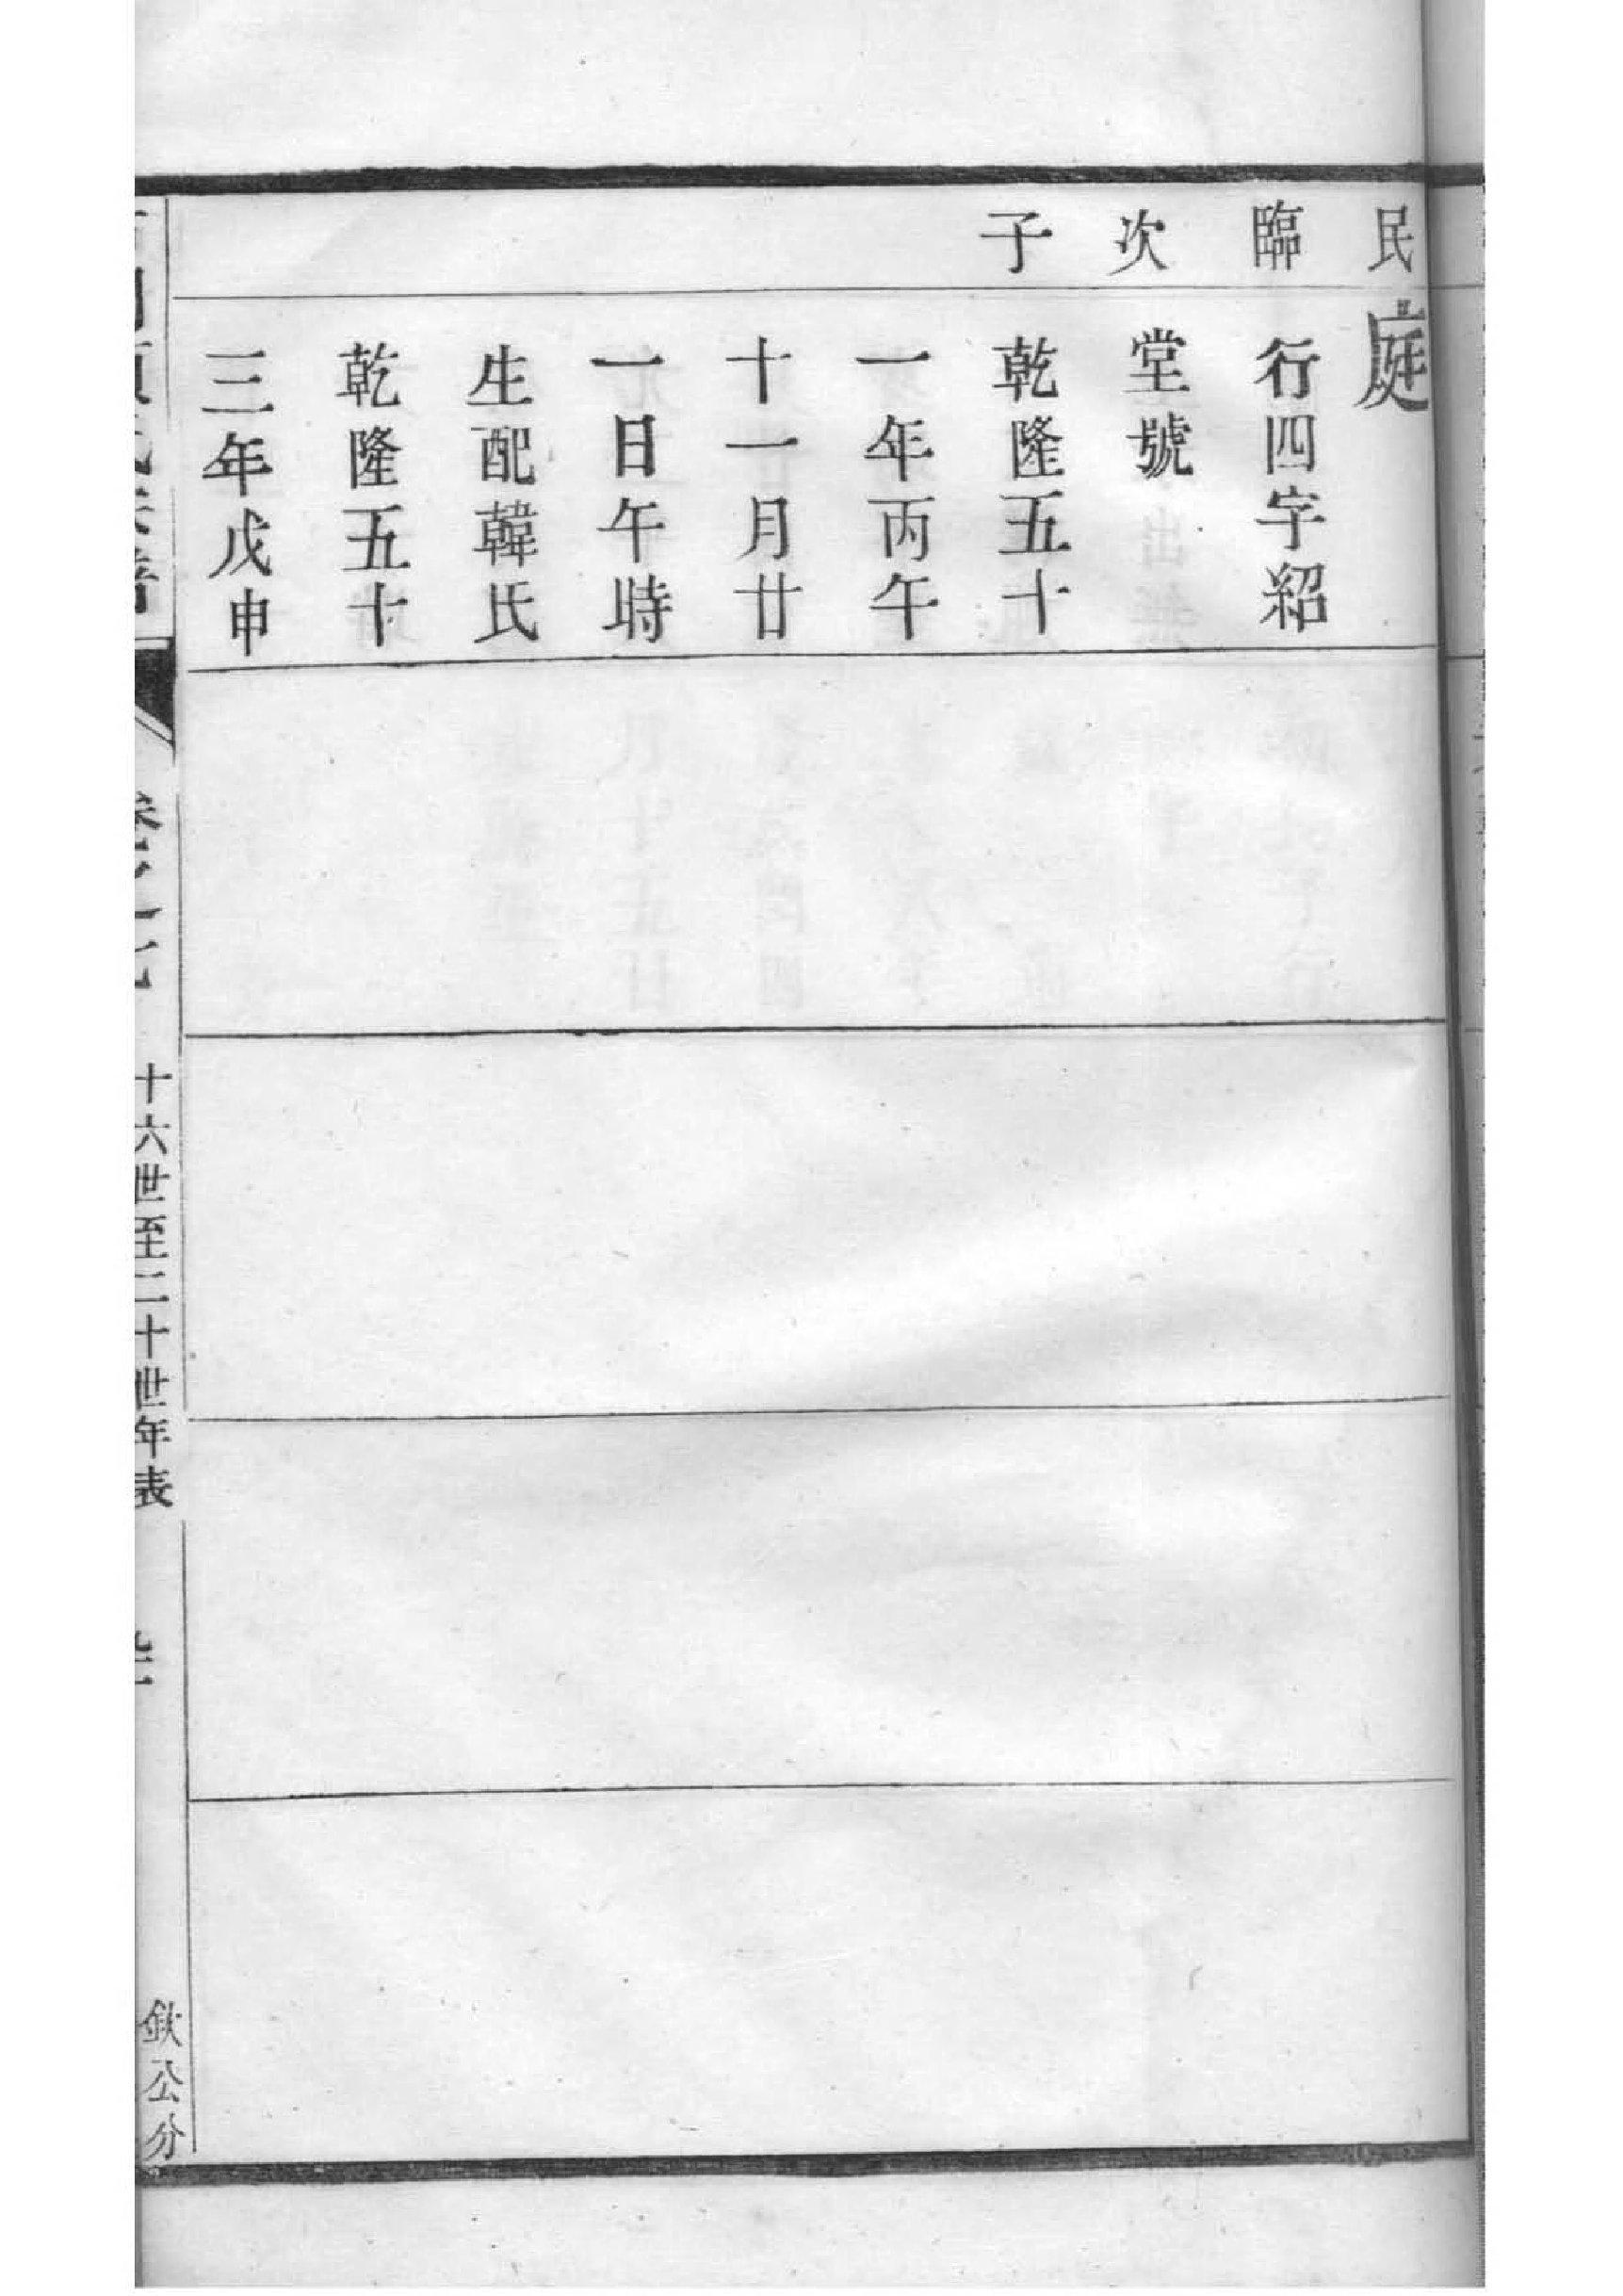 民臨次子
庭
行四字紹
堂號
乾隆五十
一年丙午
十一月廿
一日午時
生配韓氏
乾隆五十
三年戊申
十六世至二十世年表
欽公分